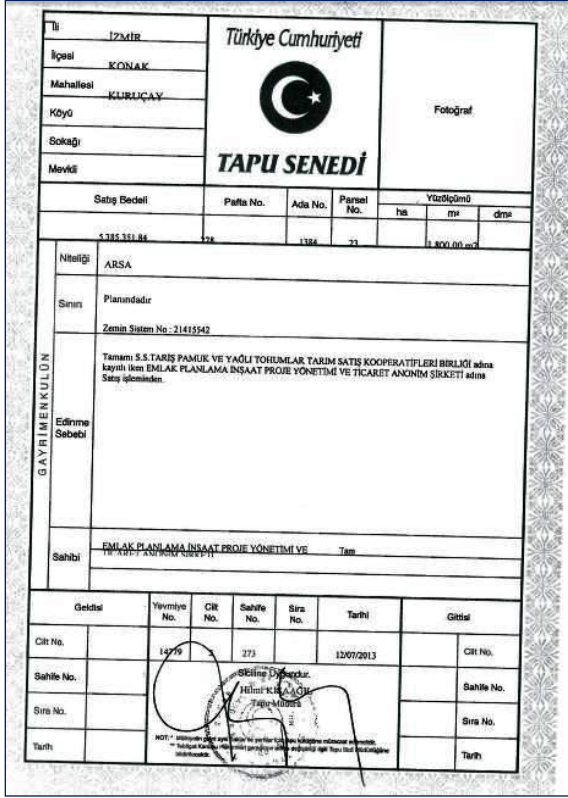 İli İZMİR
İlçesi KONAK
Mahallesi KURUÇAY
Köyü
Sokağı
Mevkii
Türkiye Cumhuriyeti
TAPU SENEDİ
Fotoğraf
Satış Bedeli Pafta No. Ada No. Parsel No. Yüzölçümü
ha m² dm²
5.385.351,84 228 1384 23 1.800,00 m2
GAYRİMENKULÜN
Niteliği ARSA
Sınırı Planındadır
Zemin Sistem No : 21415542
Edinme Sebebi
Tamamı S.S.TARİŞ PAMUK VE YAĞLI TOHUMLAR TARIM SATIŞ KOOPERATİFLERİ BİRLİĞİ adına
kayıtlı iken EMLAK PLANLAMA İNŞAAT PROJE YÖNETİMİ VE TİCARET ANONİM ŞİRKETİ adına
Satış işleminden.
Sahibi
EMLAK PLANLAMA İNŞAAT PROJE YÖNETİMİ VE Tam
TİCARET ANONİM ŞİRKETİ
Geldisi Yevmiye No. Cilt No. Sahife No. Sıra No. Tarihi Gittisi
Cilt No. 14779 273 12/07/2013 Cilt No.
Sahife No. Siciline Uygundur. Sahife No.
Hilmi
Tapu Müdürü
Sıra No. Sıra No.
Tarih Tarih
NOT: *